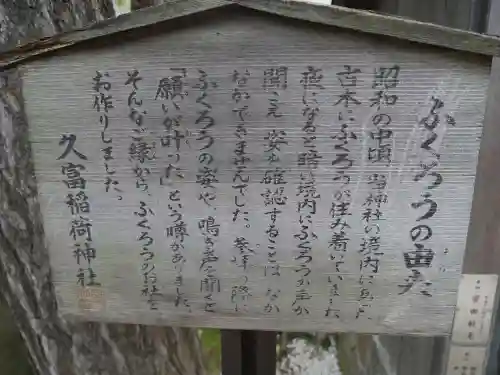 ふくろうの由来
昭和の中頃、当神社の境内に
古木にふくろうが住み着いていました。
夜になると暗い境内にふくろうの声が
聞こえ、姿を確認することは、なか
なかできませんでした。参拝の際に
ふくろうの姿や、鳴き声を聞くと
「願いが叶った」という噂がありました。
そんなご縁から、ふくろうのお社を
お作りしました。
久富稲荷神社